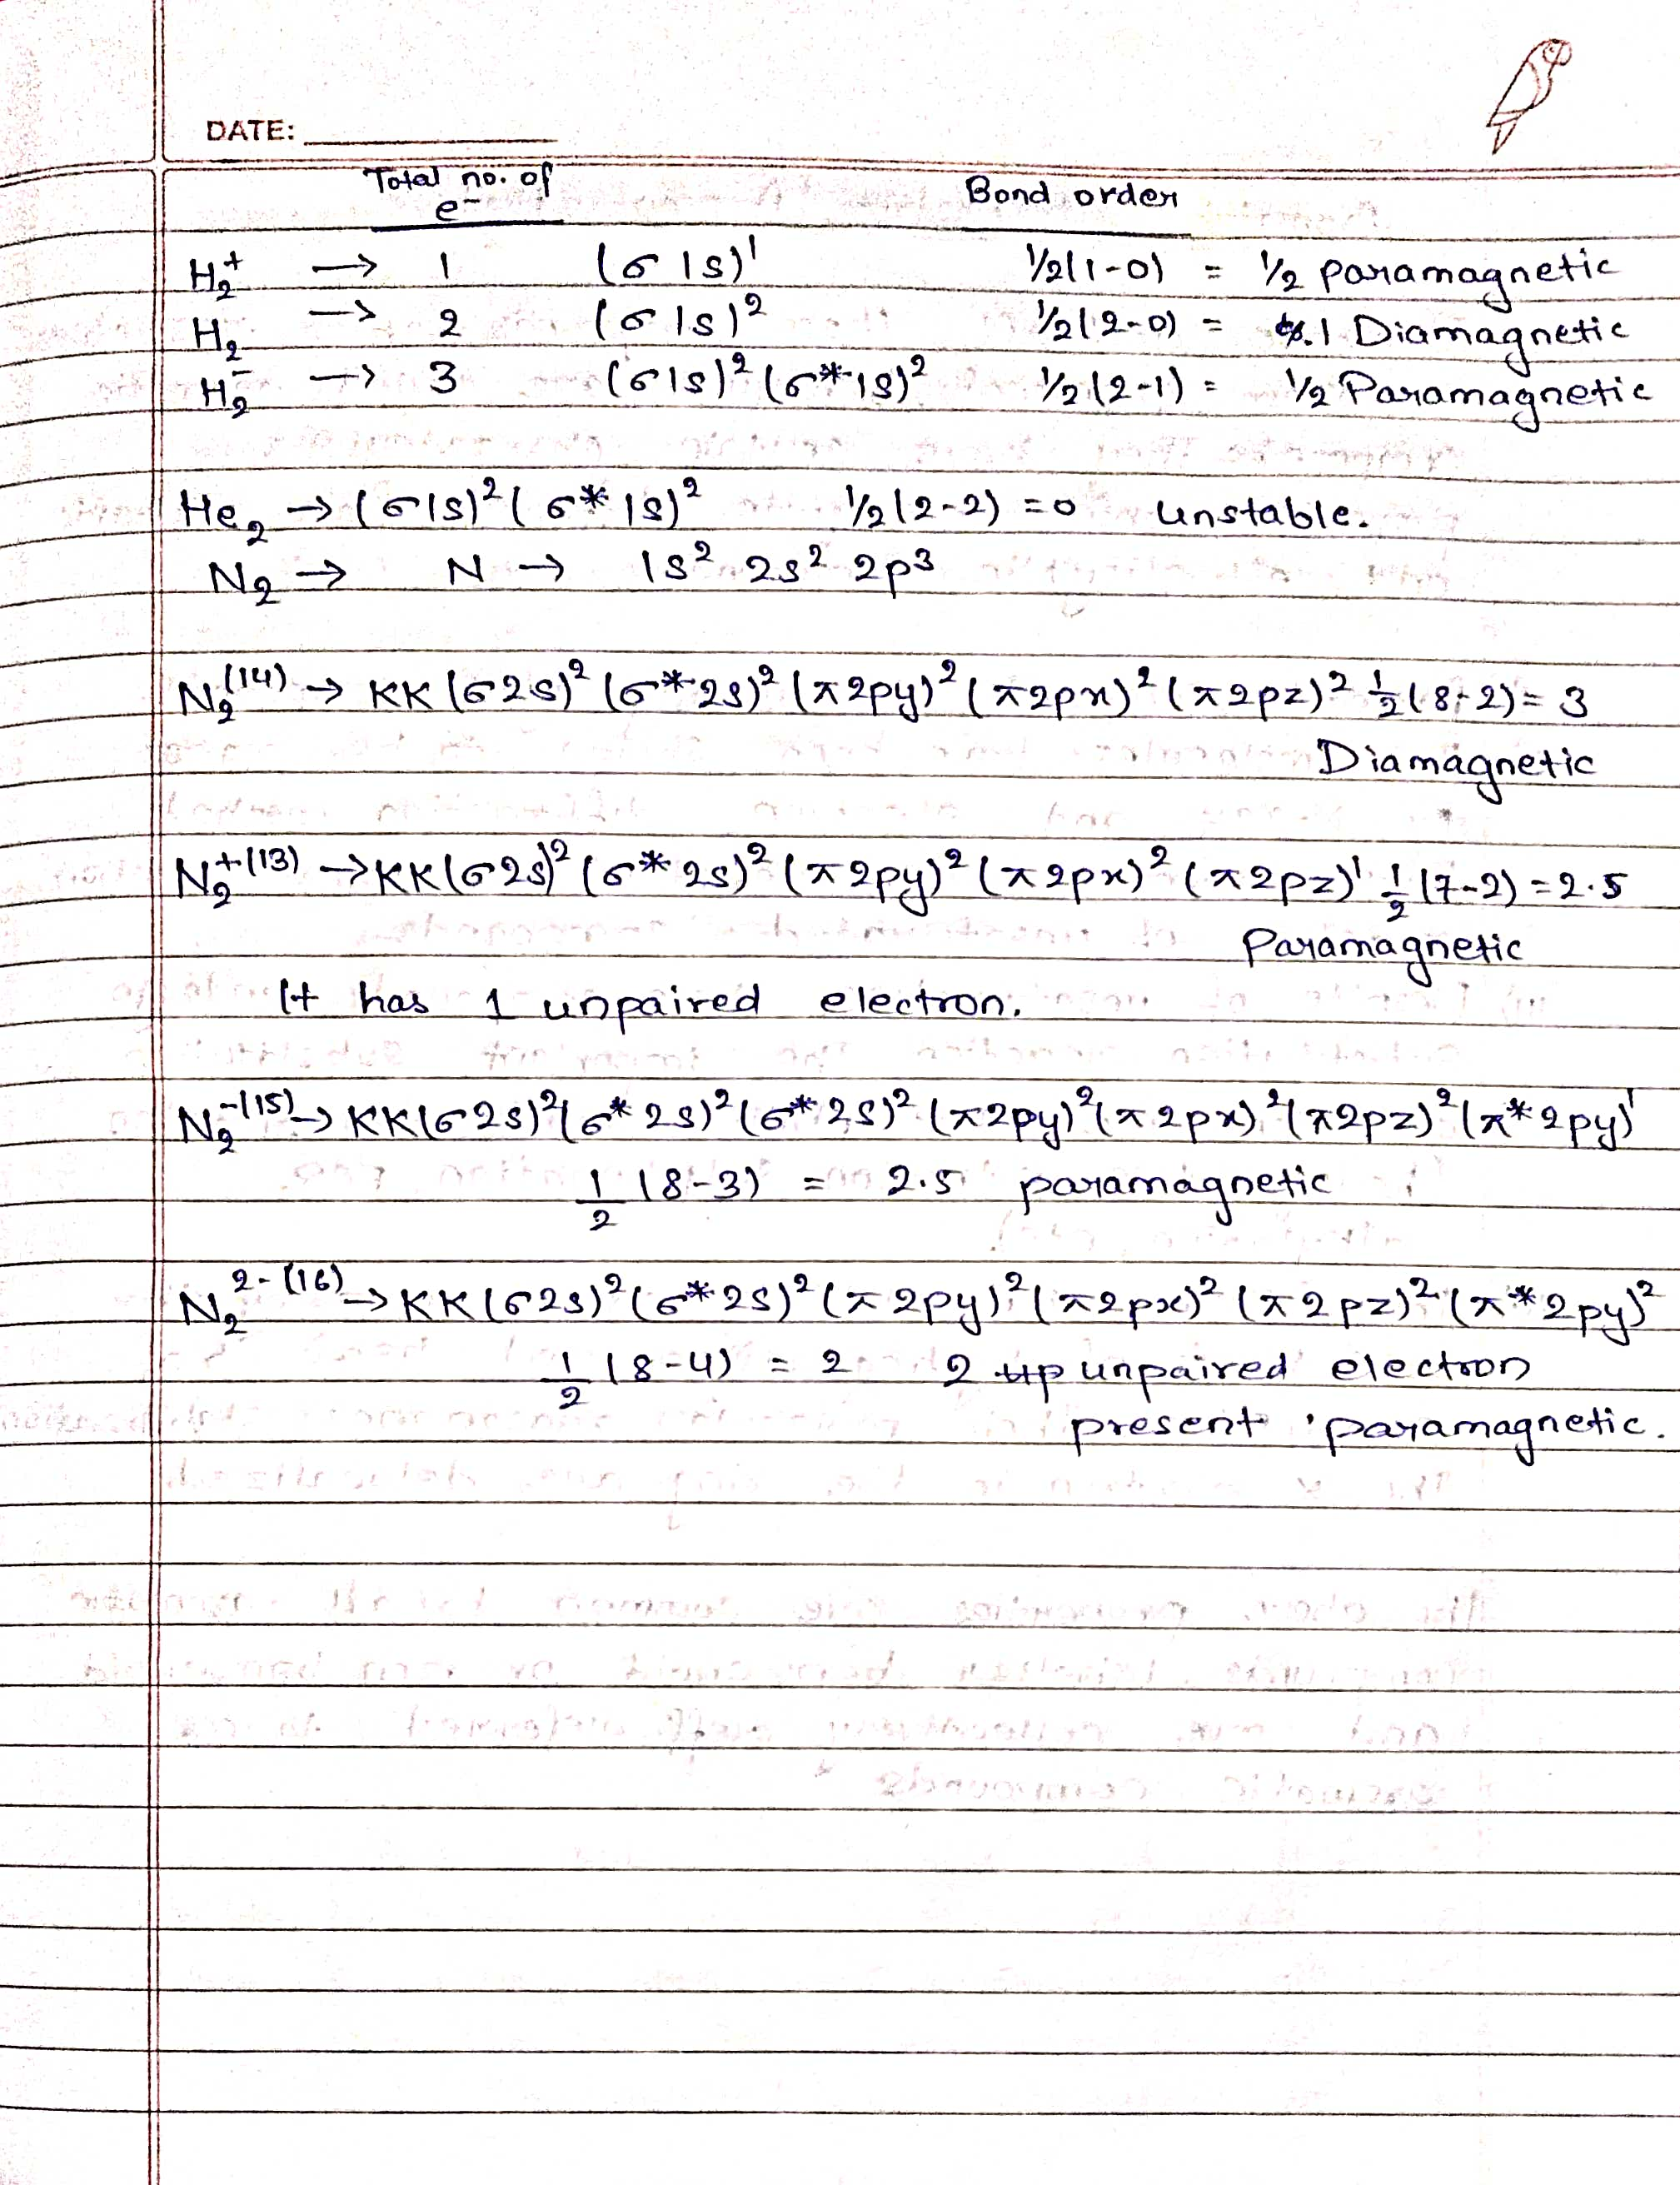 DATE:
Total no. of e⁻ Bond order
H₂⁺ → 1 (σ1s)¹ 1/2(1-0) = 1/2 paramagnetic
H₂ → 2 (σ1s)² 1/2(2-0) = 1 Diamagnetic
H₂⁻ → 3 (σ1s)² (σ*1s)² 1/2(2-1) = 1/2 Paramagnetic
He₂ → (σ1s)² (σ*1s)² 1/2(2-2) = 0 unstable.
N₂ → N → 1s² 2s² 2p³
N₂⁽¹⁴⁾ → KK (σ2s)² (σ*2s)² (π2py)² (π2px)² (π2pz)² 1/2(8-2) = 3
Diamagnetic
N₂⁺⁽¹³⁾ → KK(σ2s)² (σ*2s)² (π2py)² (π2px)² (π2pz)¹ 1/2(7-2) = 2.5
Paramagnetic
It has 1 unpaired electron.
N₂⁻⁽¹⁵⁾ → KK(σ2s)² (σ*2s)² (σ*2s)² (π2py)² (π2px)² (π2pz)² (π*2py)¹
1/2 (8-3) = 2.5 paramagnetic
N₂²⁻⁽¹⁶⁾ → KK(σ2s)² (σ*2s)² (π2py)² (π2px)² (π2pz)² (π*2py)²
1/2 (8-4) = 2 2 unpaired electron
present paramagnetic.